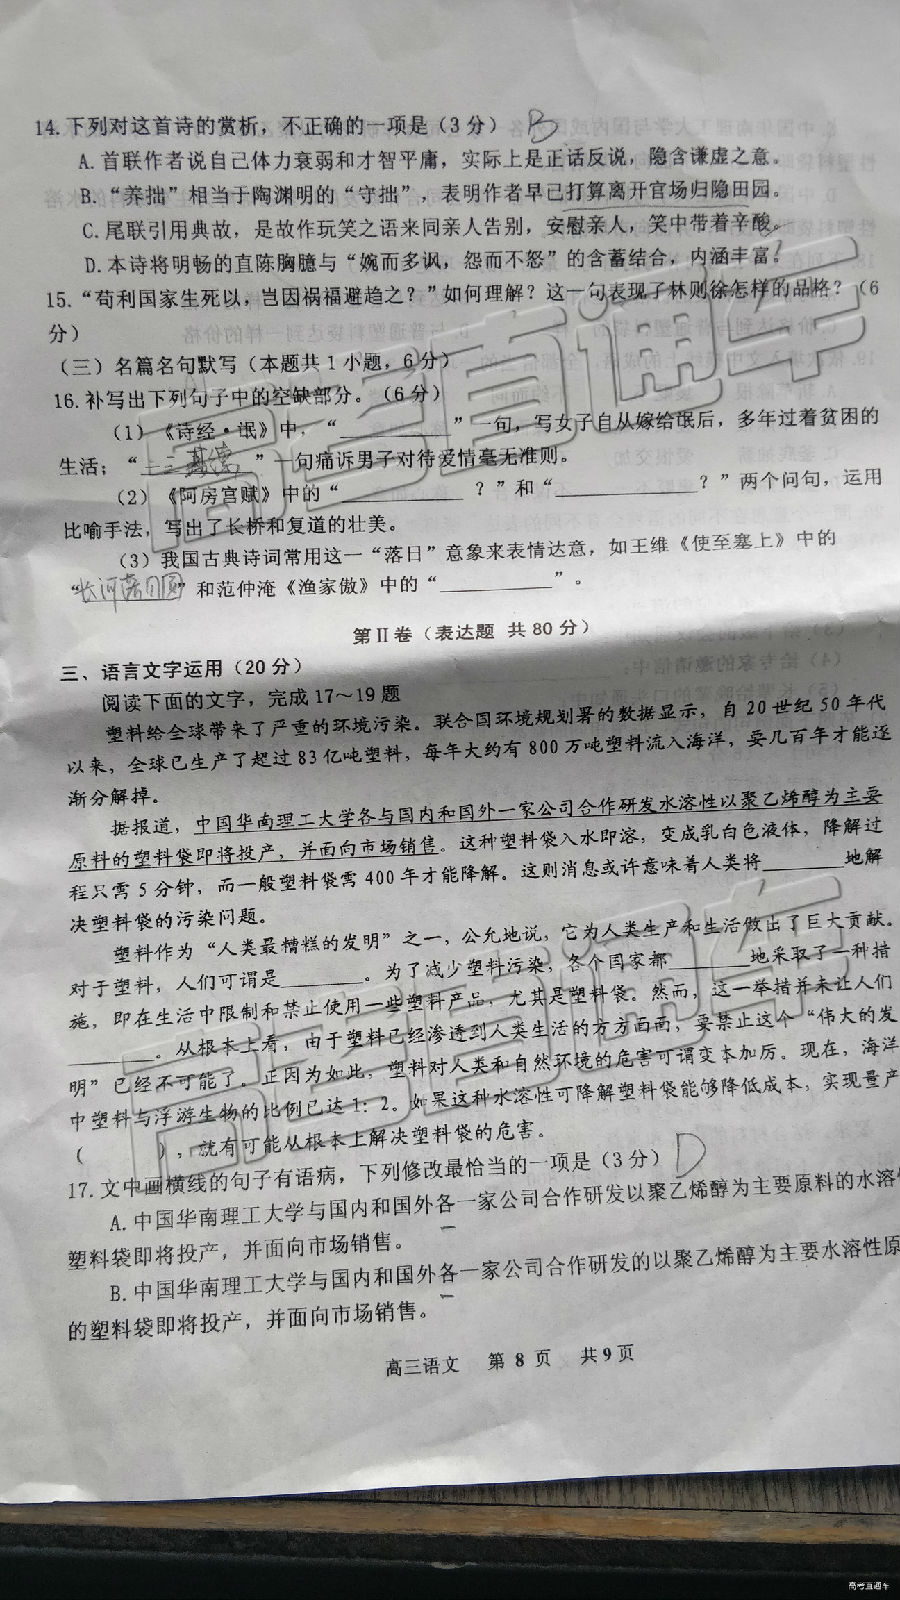 14.下列对这首诗的赏析，不正确的一项是（3分） B
A.首联作者说自己体力衰弱和才智平庸，实际上是正话反说，隐含谦虚之意。
B.“养拙”相当于陶渊明的“守拙”，表明作者早已打算离开官场归隐田园。
C.尾联引用典故，是故作玩笑之语来同亲人告别，安慰亲人，笑中带着辛酸。
D.本诗将明畅的直陈胸臆与“婉而多讽，怨而不怒”的含蓄结合，内涵丰富。
15.“苟利国家生死以，岂因祸福避趋之？”如何理解？这一句表现了林则徐怎样的品格？（6
分）
（三）名篇名句默写（本题共1小题，6分）
16.补写出下列句子中的空缺部分。（6分）
（1）《诗经·氓》中，“__________”一句，写女子自从嫁给氓后，多年过着贫困的
生活；“二三其德”一句痛诉男子对待爱情毫无准则。
（2）《阿房宫赋》中的“__________？”和“__________？”两个问句，运用
比喻手法，写出了长桥和复道的壮美。
（3）我国古典诗词常用这一“落日”意象来表情达意，如王维《使至塞上》中的
“长河落日圆”和范仲淹《渔家傲》中的“__________”。
第Ⅱ卷（表达题 共80分）
三、语言文字运用（20分）
阅读下面的文字，完成17～19题
塑料给全球带来了严重的环境污染。联合国环境规划署的数据显示，自20世纪50年代
以来，全球已生产了超过83亿吨塑料，每年大约有800万吨塑料流入海洋，要几百年才能逐
渐分解掉。
据报道，中国华南理工大学各与国内和国外一家公司合作研发水溶性以聚乙烯醇为主要
原料的塑料袋即将投产，并面向市场销售。这种塑料袋入水即溶，变成乳白色液体，降解过
程只需5分钟，而一般塑料袋需400年才能降解。这则消息或许意味着人类将________地解
决塑料袋的污染问题。
塑料作为“人类最糟糕的发明”之一，公允地说，它为人类生产和生活做出了巨大贡献。
对于塑料，人们可谓是________。为了减少塑料污染，各个国家都________地采取了一种措
施，即在生活中限制和禁止使用一些塑料产品，尤其是塑料袋。然而，这一举措并未让人们
________。从根本上看，由于塑料已经渗透到人类生活的方方面面，要禁止这个“伟大的发
明”已经不可能了。正因为如此，塑料对人类和自然环境的危害可谓变本加厉。现在，海洋
中塑料与浮游生物的比例已达1：2。如果这种水溶性可降解塑料袋能够降低成本，实现量产
（　　　），就有可能从根本上解决塑料袋的危害。
17.文中画横线的句子有语病，下列修改最恰当的一项是（3分） D
A.中国华南理工大学与国内和国外各一家公司合作研发以聚乙烯醇为主要原料的水溶
塑料袋即将投产，并面向市场销售。
B.中国华南理工大学与国内和国外各一家公司合作研发的以聚乙烯醇为主要水溶性原
的塑料袋即将投产，并面向市场销售。
高三语文 第8页 共9页
高考直通车
高考直通车
高考直通车